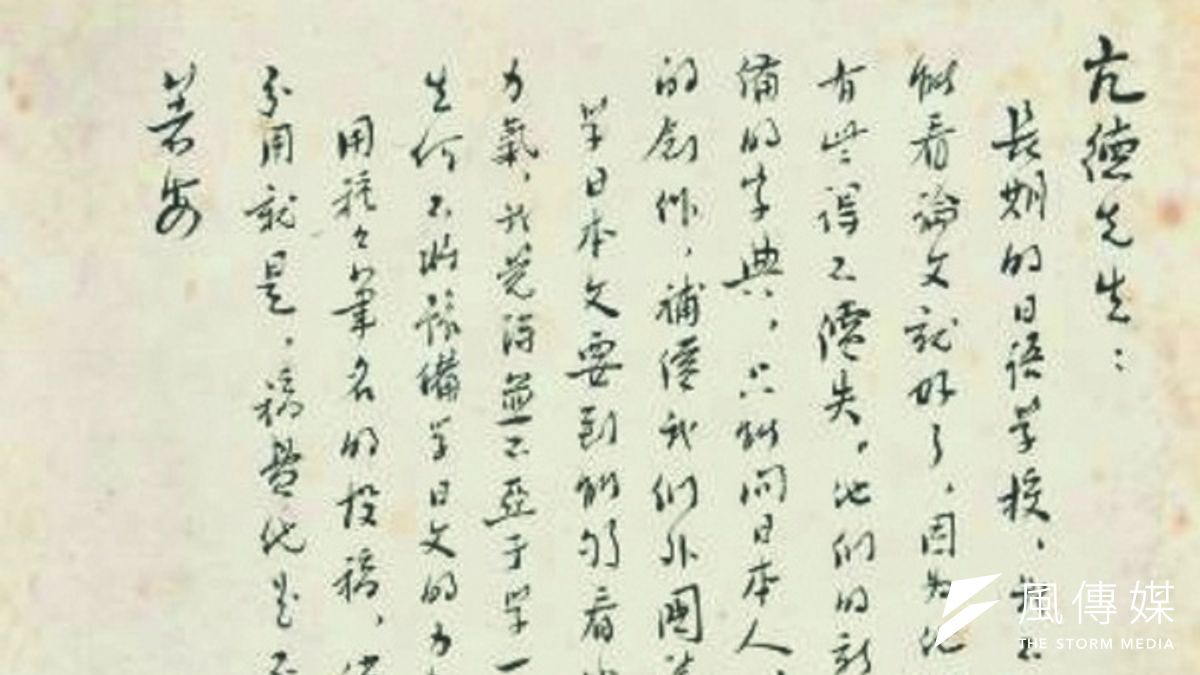 亢德先生：
長期的日語学校，我不
能看論文就好了，因为他
有些得不償失。他们的新
備的字典，只能問日本人，
的創作，補償我们外國
学日本文要到能够看
力氣，我覺得並不亞于学一
生何不將豫備学日文的力
用種々筆名的投稿，
分用就是，稿費他是不
著安
風傳媒
THE STORM MEDIA